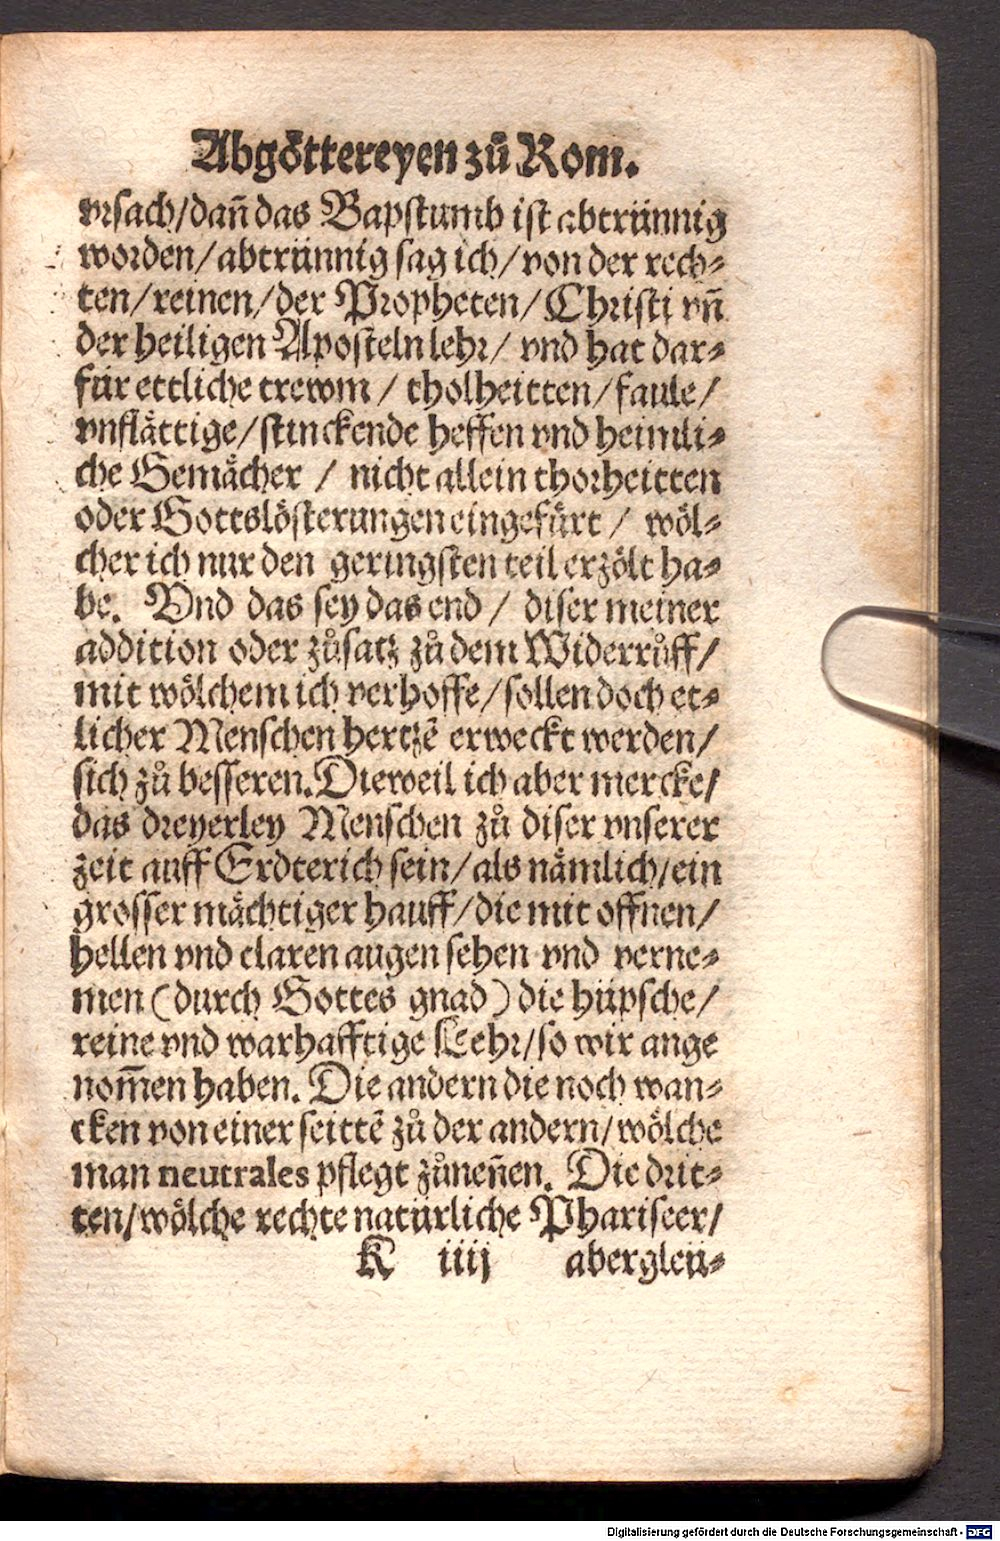 Abgöttereyen zů Rom.
vrsach/dañ das Bapstumb ist abtrünnig
worden/abtrünnig sag ich/von der rech-
ten/reinen/der Propheten/Christi vñ
der heiligen Aposteln lehr/ vnd hat dar-
für ettliche trewm / tholheitten/faule/
vnflättige/stinckende heffen vnd heimli-
che Gemächer / nicht allein thorheitten
oder Gottslösterungen eingefürt / wöl-
cher ich nur den geringsten teil erzölt ha-
be. Vnd das sey das end / diser meiner
addition oder zůsatz zů dem Widerrůff/
mit wölchem ich verhoffe/sollen doch et-
licher Menschen hertzẽ erweckt werden/
sich zů besseren. Dieweil ich aber mercke/
das dreyerley Menschen zů diser vnserer
zeit auff Erdterich sein/als nämlich/ein
grosser mächtiger hauff/die mit offnen/
hellen vnd claren augen sehen vnd verne-
men (durch Gottes gnad) die hüpsche/
reine vnd warhafftige Lehr/so wir ange
nom̃en haben. Die andern die noch wan-
cken von einer seittẽ zů der andern/wölche
man neutrales pflegt zůneñen. Die drit-
ten/wölche rechte natürliche Phariseer/
K iiij aberglеü-
Digitalisierung gefördert durch die Deutsche Forschungsgemeinschaft - DFG